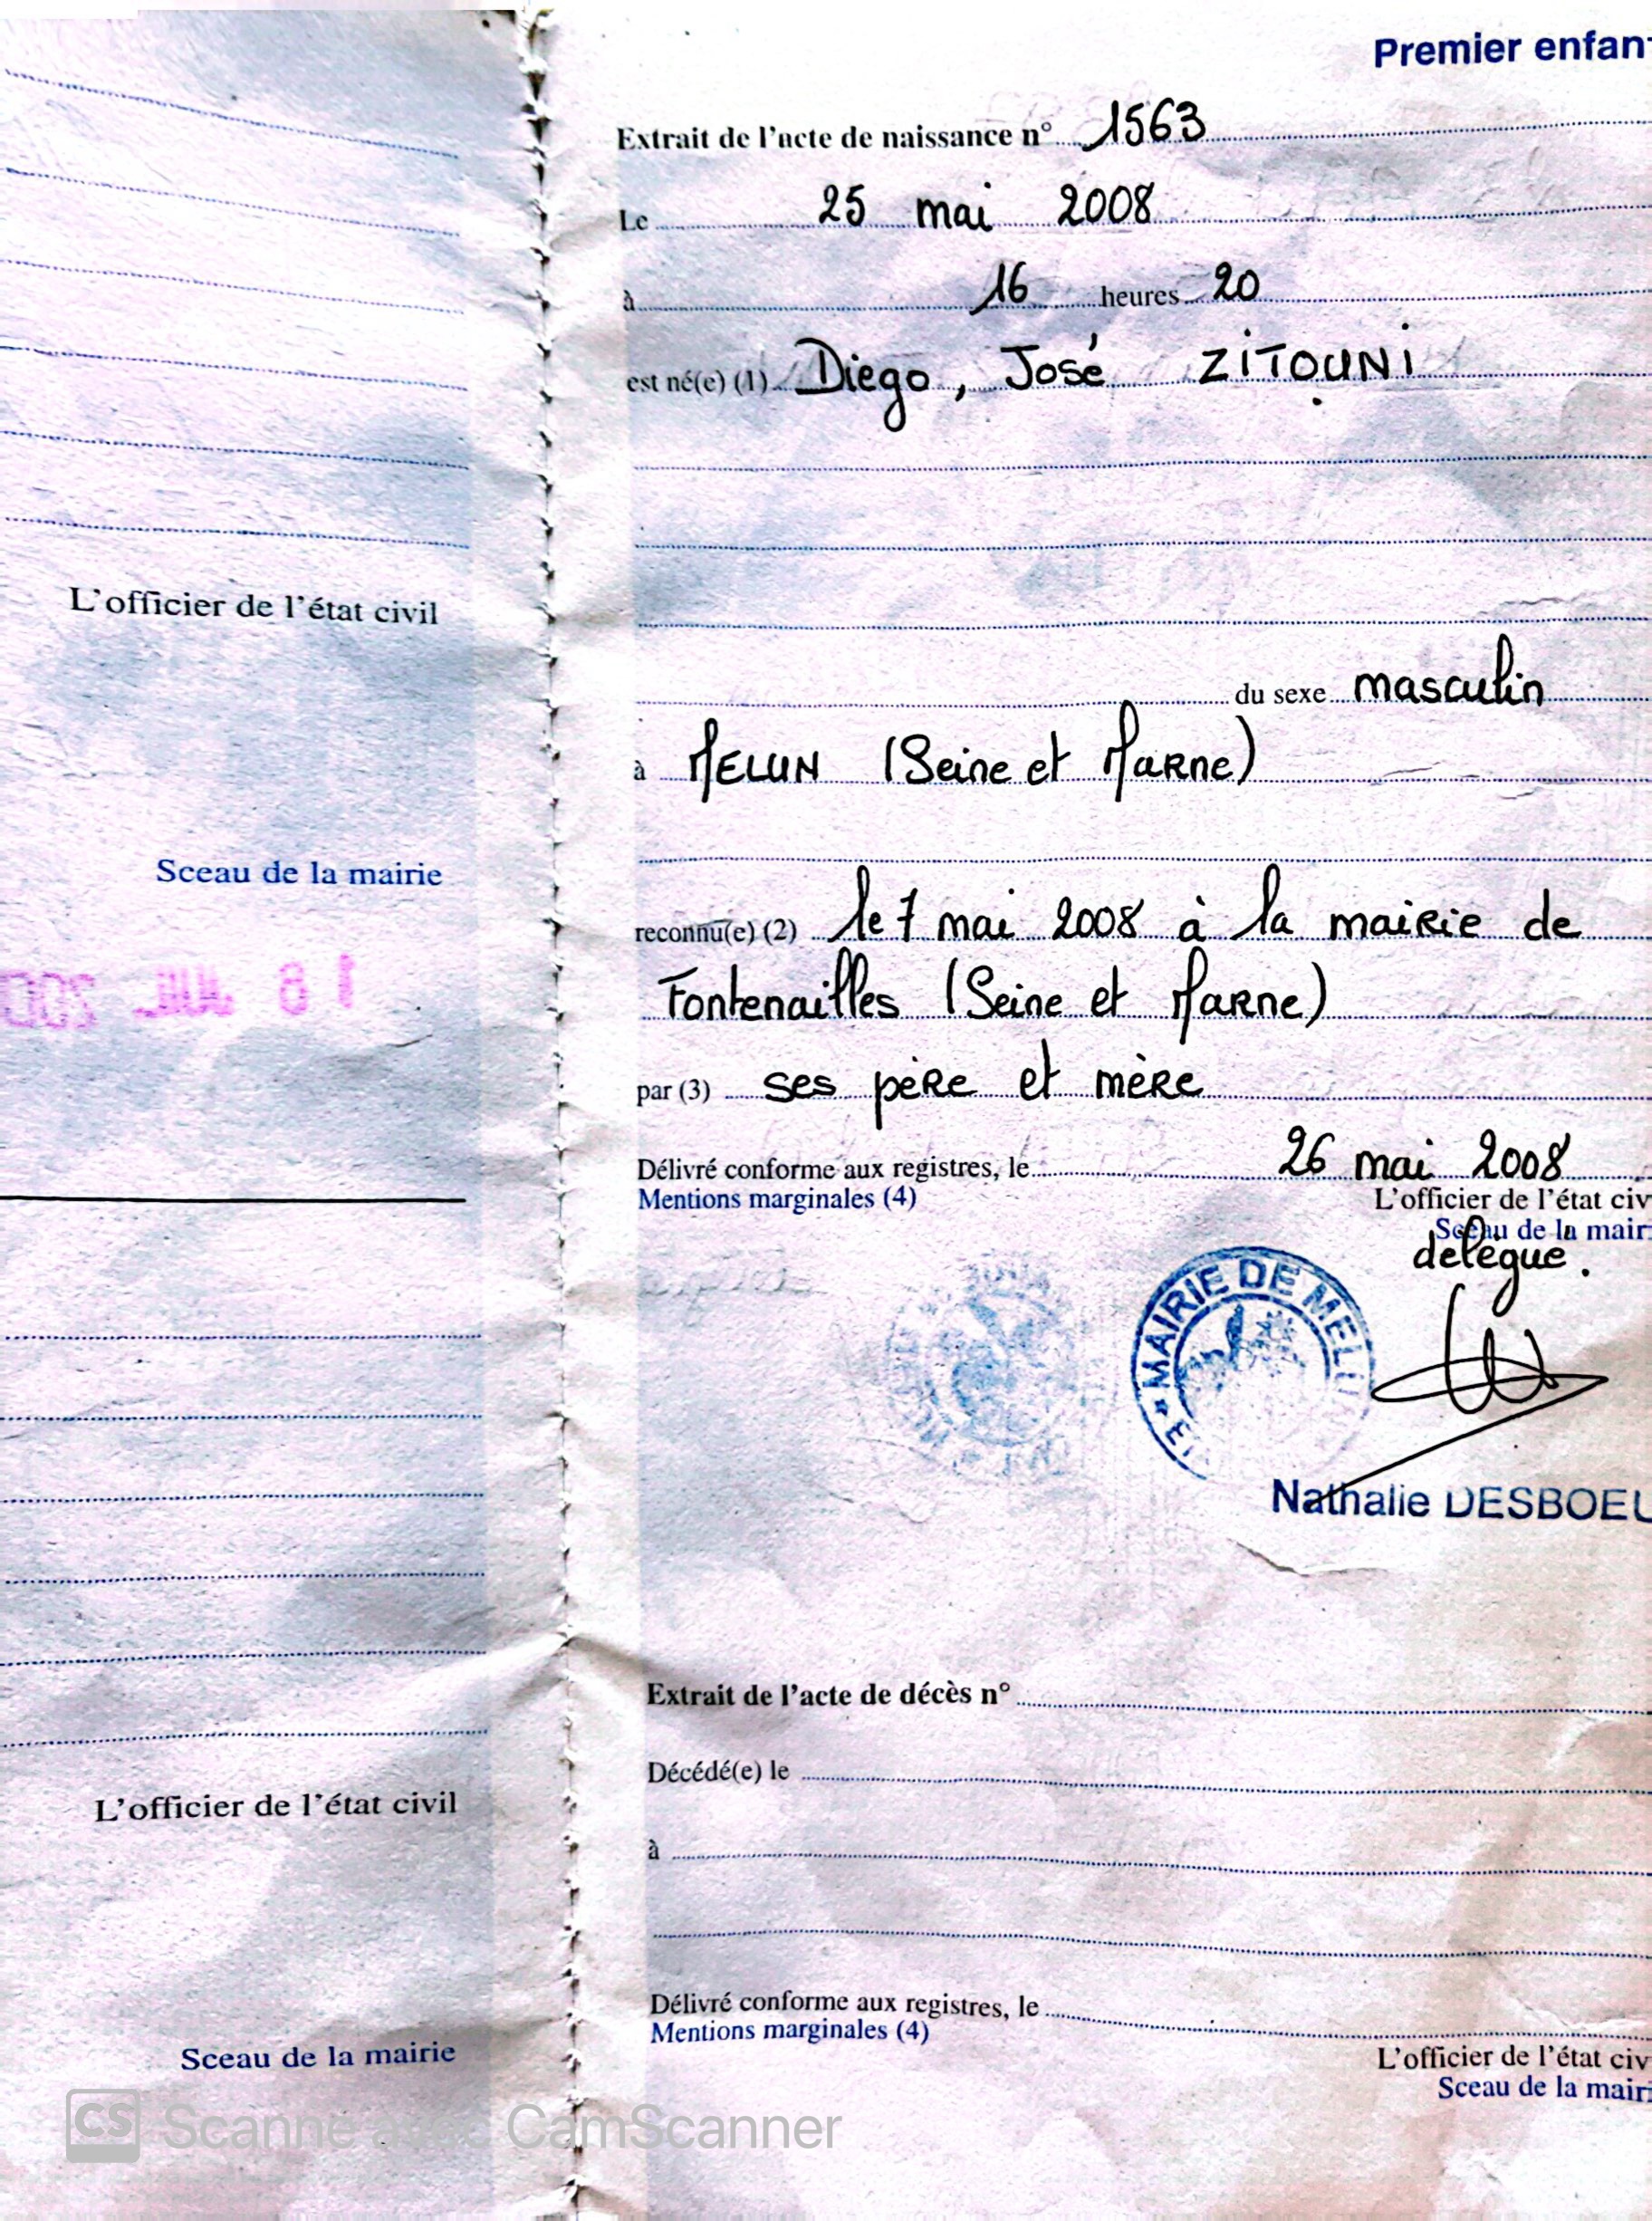 L'officier de l'état civil
Sceau de la mairie
L'officier de l'état civil
Sceau de la mairie
Premier enfan
Extrait de l'acte de naissance n° 1563
Le 25 mai 2008
à 16 heures 20
est né(e) (1) Diego, José ZITOUNI
du sexe masculin
à MELUN (Seine et Marne)
reconnu(e) (2) le 7 mai 2008 à la mairie de
Fontenailles (Seine et Marne)
par (3) ses père et mère
Délivré conforme aux registres, le 26 mai 2008
Mentions marginales (4)
L'officier de l'état civ
Sceau de la mair
délégué.
MAIRIE DE MELU
Nathalie DESBOEU
Extrait de l'acte de décès n°
Décédé(e) le
à
Délivré conforme aux registres, le
Mentions marginales (4)
L'officier de l'état civ
Sceau de la mairi
CS Scanné avec CamScanner